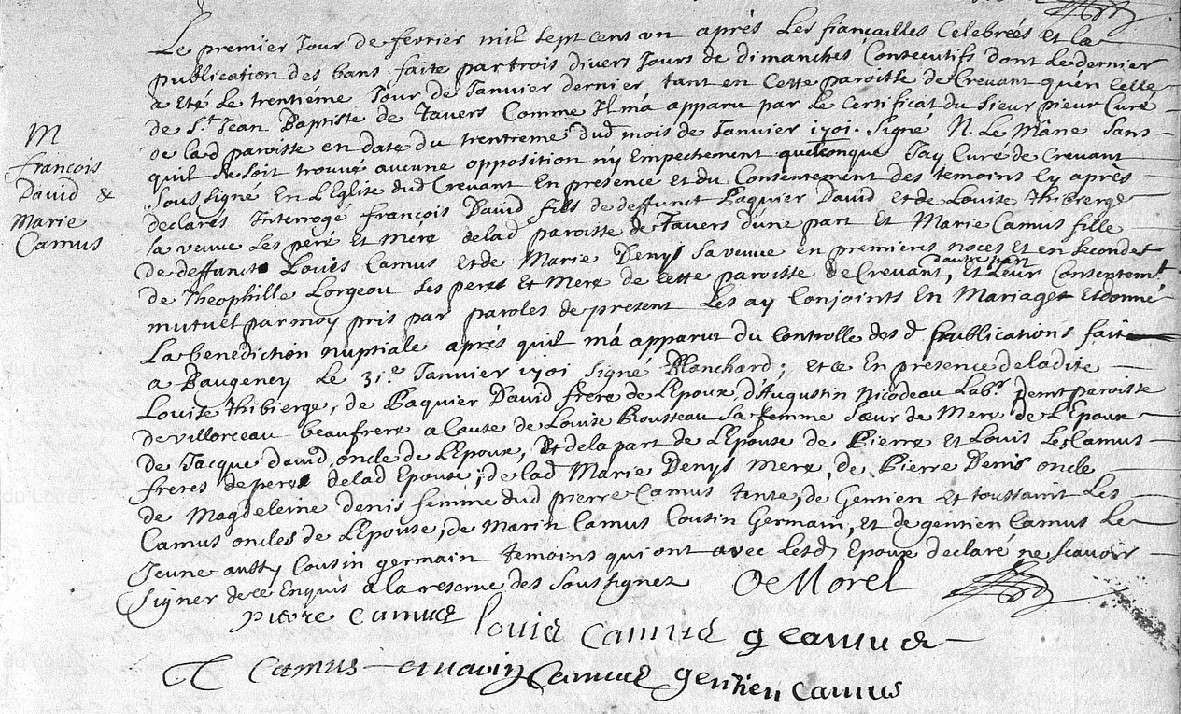 Le premier Jour de fevrier mil sept cens un après Les fiancailles Celebreés et la
publication des bans faite par trois divers Jours de dimanches Consecutifs dont Le dernier
a eté Le trentiéme Jour de Janvier dernier tant en Cette paroisse de Crevant quen Celle
de St. Jean Baptiste de Tavers Comme Il mà apparu par Le Certificat du Sieur prieur Curé
de lad paroisse en date du trentieme dud mois de Janvier 1701. Signé N. Le Mâne Sans
quil se soit trouvé aucune opposition ny Empechement quelconque Jay Curé de Crevant
M
françois
David &
Marie
Camus
Soussigné En L'Eglise dud Crevant En presence et du Consentement des temoins Cy aprés
declarés Interrogé françois David fils de deffunct Paquier David et de Louise Thibierge
sa veuve Les peré et Meré delad paroisse de Tavers d'une part Et Marie Camus fille
de deffuncts Louis Camus et de Marie Denys sa veuve en premieres noces et en secondes
de Theophille Lorgeou Ses pere et Mere de cette paroisse de Crevant, dautre part et Leur Consentemt.
mutuel par moy pris par paroles de present Les ay Conjoints En Mariage et donné
La benediction nuptiale aprés quil mà apparu du Controlle des d publications fait
a Baugency Le 31.e Janvier 1701 signé Blanchard; et ce En presence de ladite
Louise Thibierge, de Paquier David frere de L'Epoux, d'Augustin Nicodeau Labr. demt paroisse
de villorceau beaufrere a Cause de Louise Rousseau sa femme Sœur de Mere de L'Epoux
de Jacque David oncle de L'Epoux, Et de la part de L'Epouse de Pierre et Louis Les Camus
freres de pere delad Epouse; de lad Marie Denys mere, de Pierre Denis oncle
de Magdeleine denis femme dud pierre Camus tante, de Gentien et toussaint Les
Camus oncles de L'Epouse, de Marin Camus Cousin Germain, et de gentien Camus Le
Jeune aussy Cousin germain temoins qui ont avec lesd Epoux declaré ne scavoir
signer de ce Enquis a la reserve des Soussignez DeMorel
pierre Camus Louis Camus g Camus
T Camus marin Camus gentien Camus